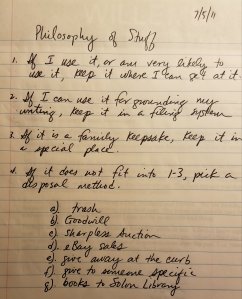 7/5/11
Philosophy of Stuff
1. If I use it, or am very likely to
use it, keep it where I can get at it.
2. If I can use it for grounding my
writing, keep it in a filing system
3. If it is a family keepsake, keep it in
a special place.
4. If it does not fit into 1-3, pick a
disposal method.
a) trash
b) Goodwill
c) Sharpless Auction
d) eBay sales
e) give away at the curb
f) give to someone specific
g) books to Solon Library